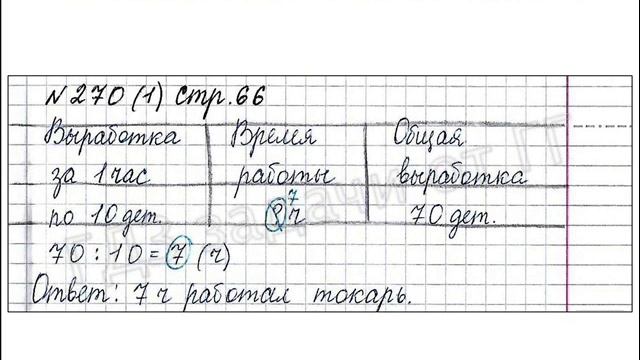 N 270 (1) стр. 66
Выработка Время Общая
за 1 час работы выработка
по 10 дет. ? ч 7 70 дет.
70 : 10 = 7 (ч)
Ответ: 7 ч работал токарь.